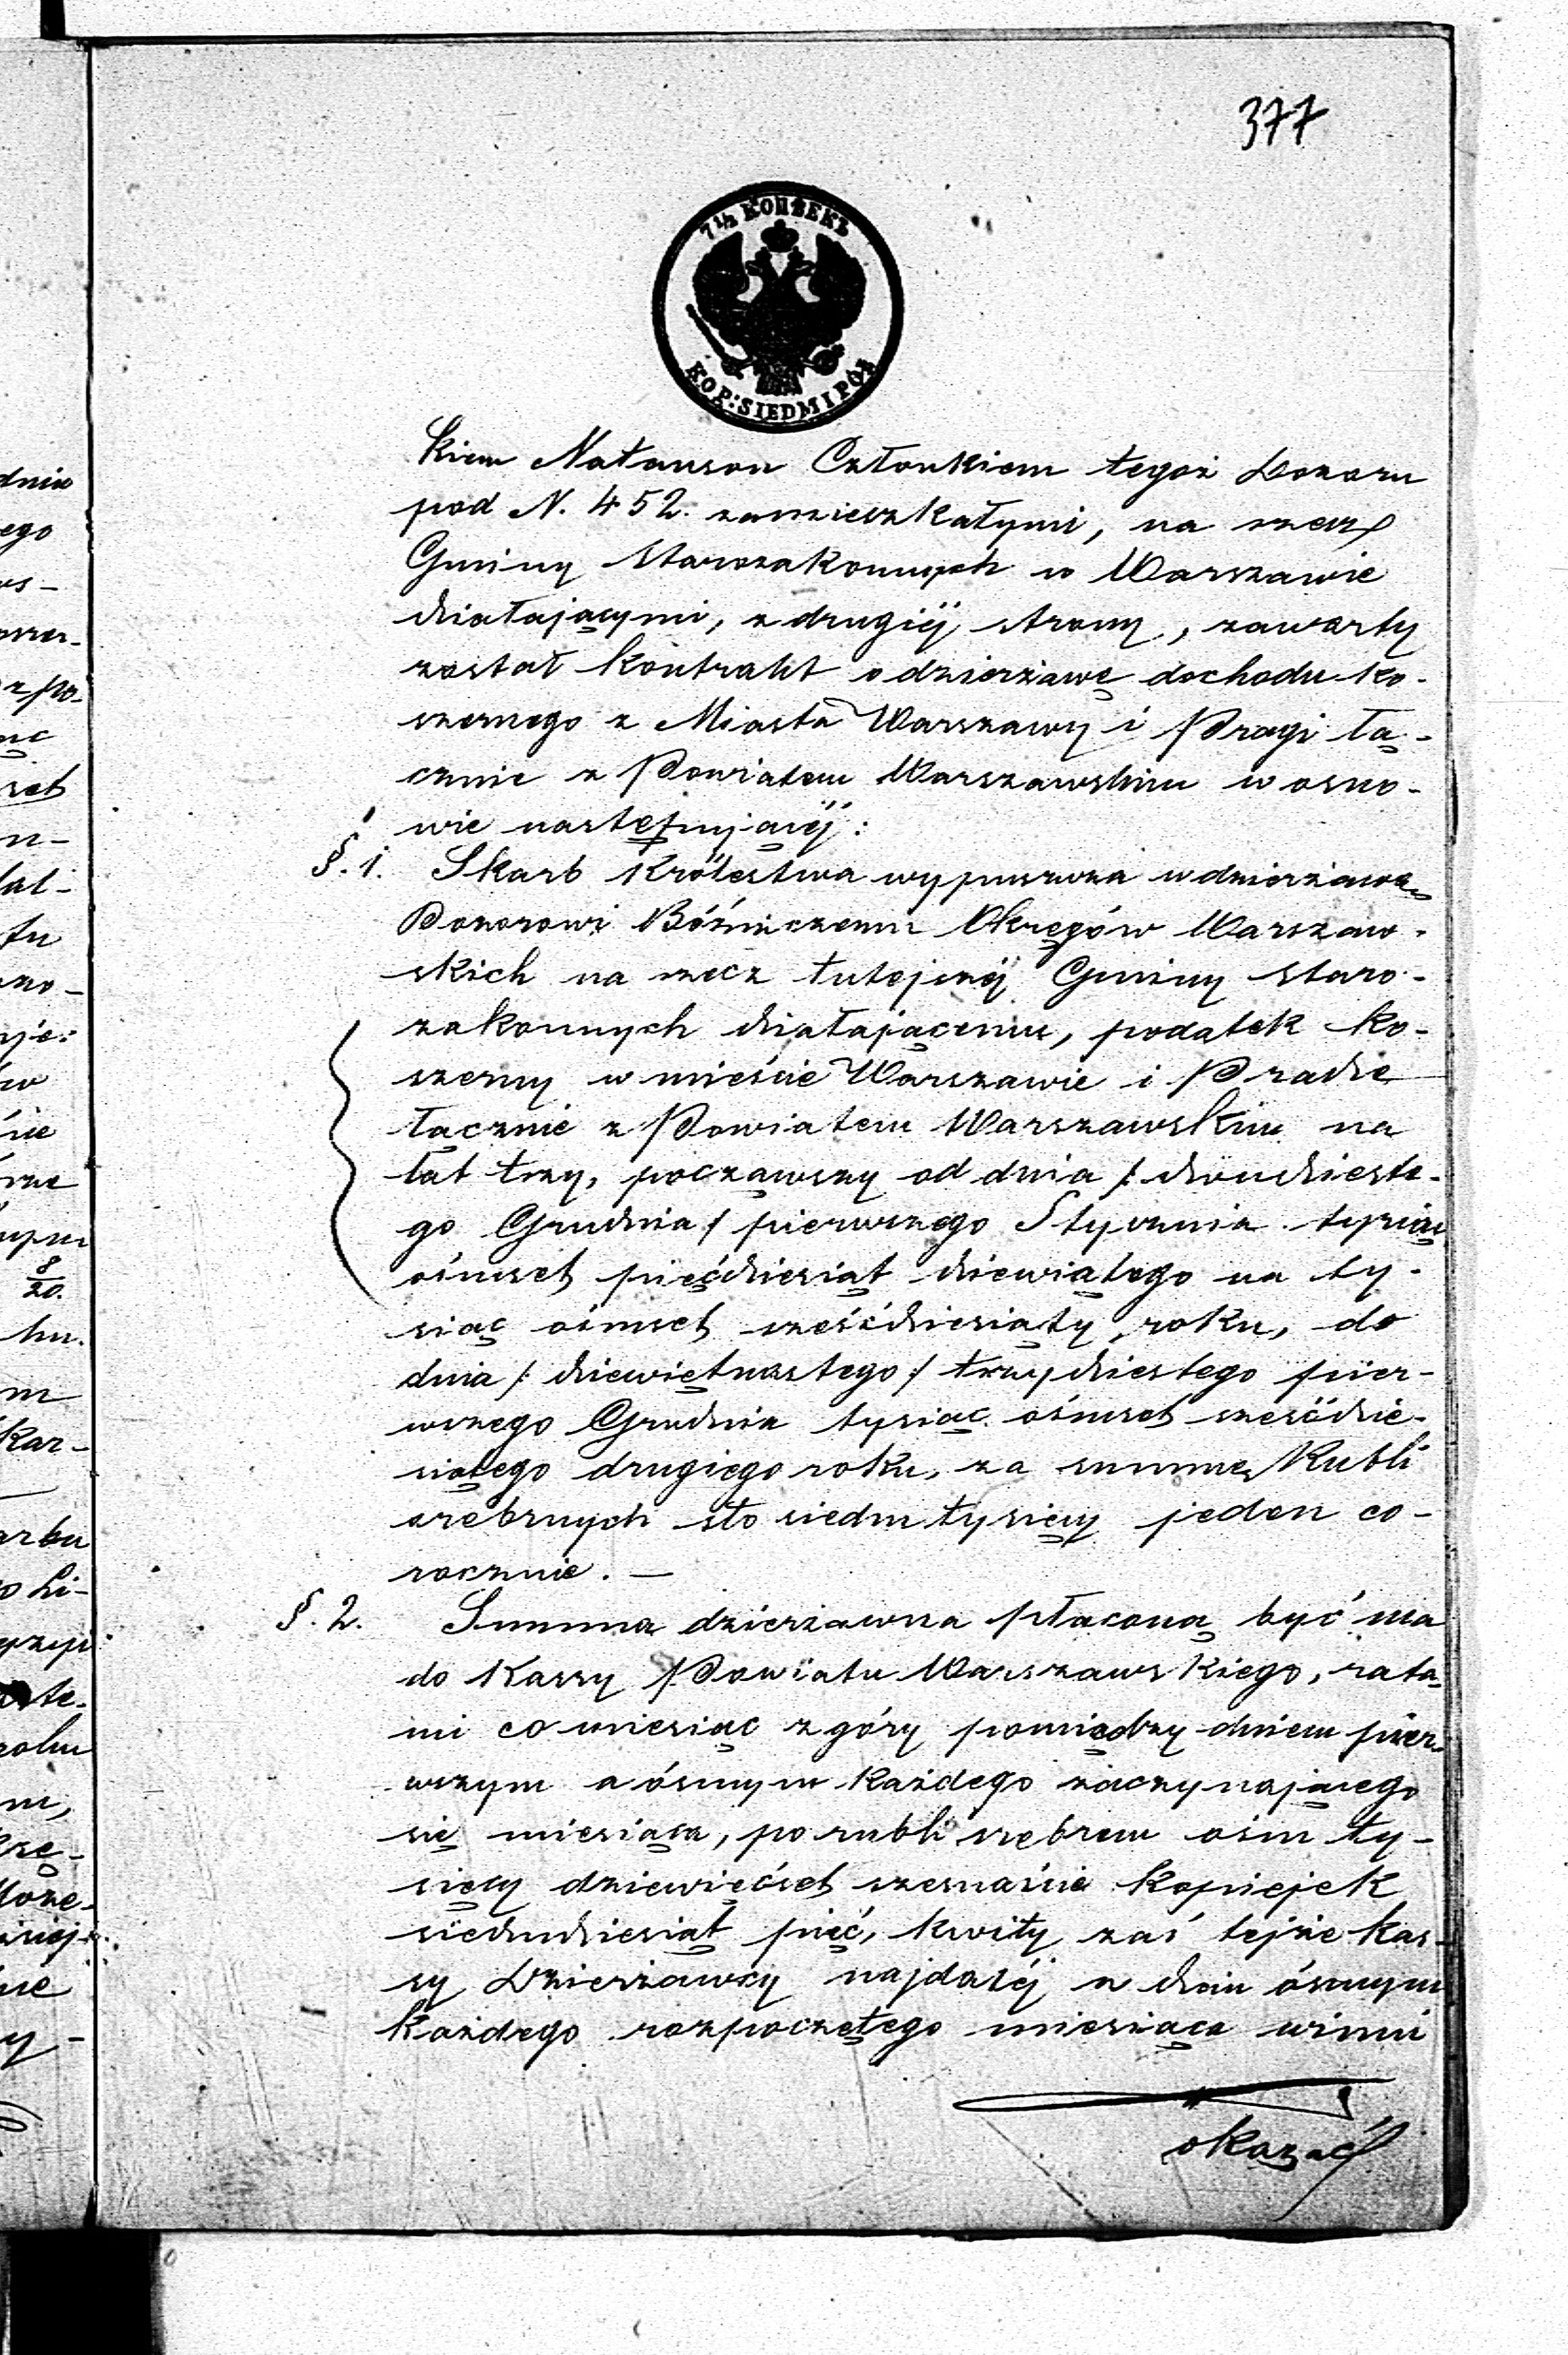 377
7½ КОПѢЕКЪ
KOP: SIEDM I PÓŁ
kiem Natanson Członkiem tegoż Dozoru
pod N. 452. zamieszkałymi, na rzecz
Gminy Starozakonnych w Warszawie
działającymi, z drugiéj strony, zawarty
został Kontrakt o dzierżawę dochodu ko-
szernego z Miasta Warszawy i Pragi łą-
cznie z Powiatem Warszawskim w osno-
wie następującéj:
§. 1. Skarb Królestwa wypuszcza w dzierżawę
Dozorowi Bóżniczemu Okręgów Warszaw-
skich na rzecz tutejszéj Gminy Staro-
zakonnych działającemu, podatek ko-
szerny w mieście Warszawie i Pradze
łącznie z Powiatem Warszawskim na
lat trzy, począwszy od dnia /: dwudzieste-
go Grudnia :/ pierwszego Stycznia tysiąc
ośmset pięćdziesiąt dziewiątego na ty-
siąc ośmset sześćdziesiąty roku, do
dnia /: dziewiętnastego :/ trzydziestego pier-
wszego Grudnia tysiąc ośmset sześćdzie-
siątego drugiego roku, za summę Rubli
srebrnych sto siedm tysięcy jeden co-
rocznie. —
§. 2. Summa dzierżawna płaconą być ma
do Kassy Powiatu Warszawskiego, rata-
mi co miesiąc z góry pomiędzy dniem pier-
wszym a ósmym każdego zaczynającego
się miesiąca, po rubli srebrem ośm ty-
sięcy dziewięćset szesnaście kopiejek
siedmdziesiąt pięć, kwity zaś tejże Kas-
sy Dzierżawcy najdaléj w dniu ósmym
każdego rozpoczętego miesiąca winni
okazać